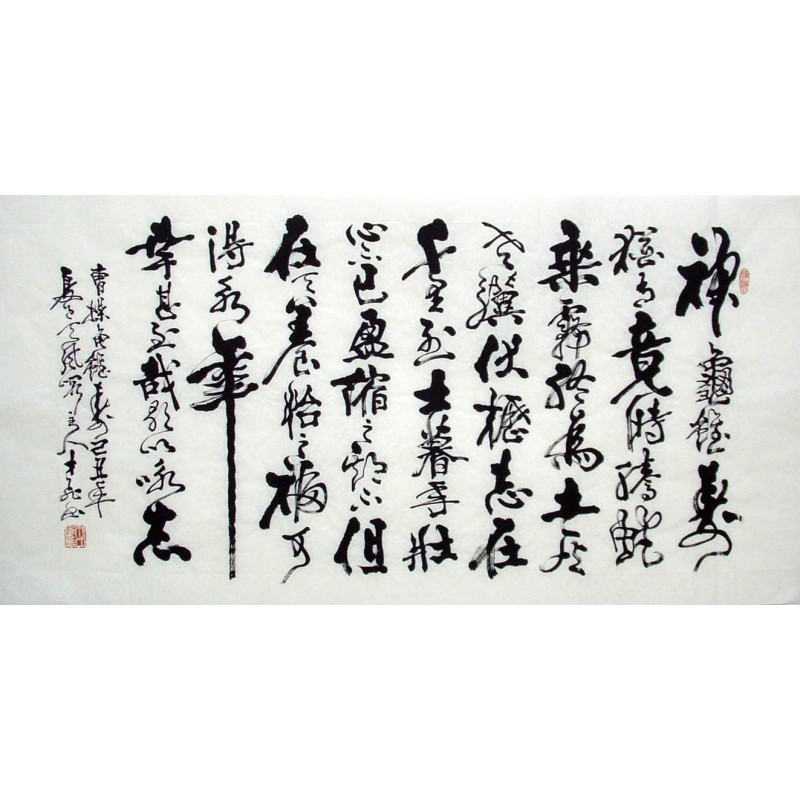 神龜雖壽
猶有竟時騰蛇
乘霧終為土灰
老驥伏櫪志在
千里烈士暮年壯
心不已盈縮之期不但
在天養怡之福可
得永年
幸甚至哉歌以咏志
曹操龜雖壽己丑年
主人書